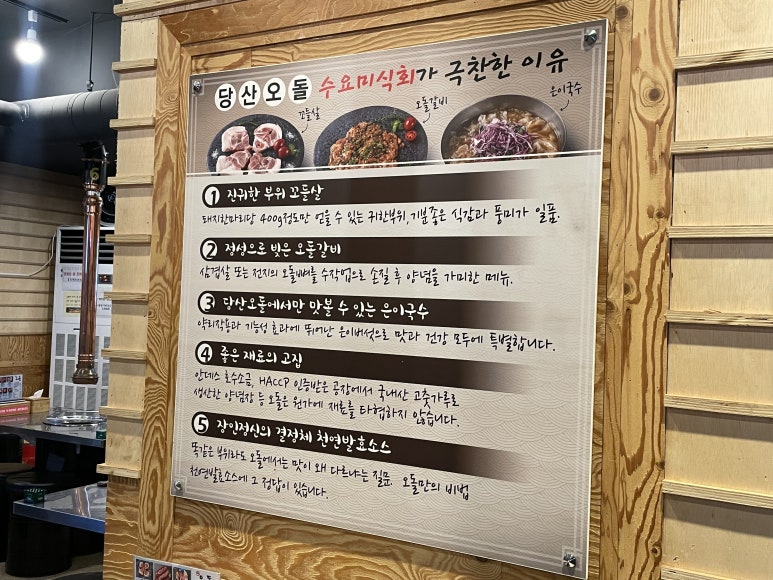 당산오돌 수요미식회가 극찬한 이유
꼬들살
오돌갈비
은이국수
1 진귀한 부위 꼬들살
돼지한마리당 400g정도만 얻을 수 있는 귀한부위, 기분좋은 식감과 풍미가 일품.
2 정성으로 빚은 오돌갈비
삼겹살 또는 전지의 오돌뼈를 수작업으로 손질 후 양념을 가미한 메뉴.
3 당산오돌에서만 맛볼 수 있는 은이국수
약리작용과 기능성 효과에 뛰어난 은이버섯으로 맛과 건강 모두에 특별합니다.
4 좋은 재료의 고집
안데스 호수소금, HACCP 인증받은 공장에서 국내산 고춧가루로
생산한 양념장 등 오돌은 원가에 재료를 타협하지 않습니다.
5 장인정신의 결정체 천연발효소스
똑같은 부위라도 오돌에서는 맛이 왜 다르냐는 질문. 오돌만의 비법
천연발효소스에 그 정답이 있습니다.
6